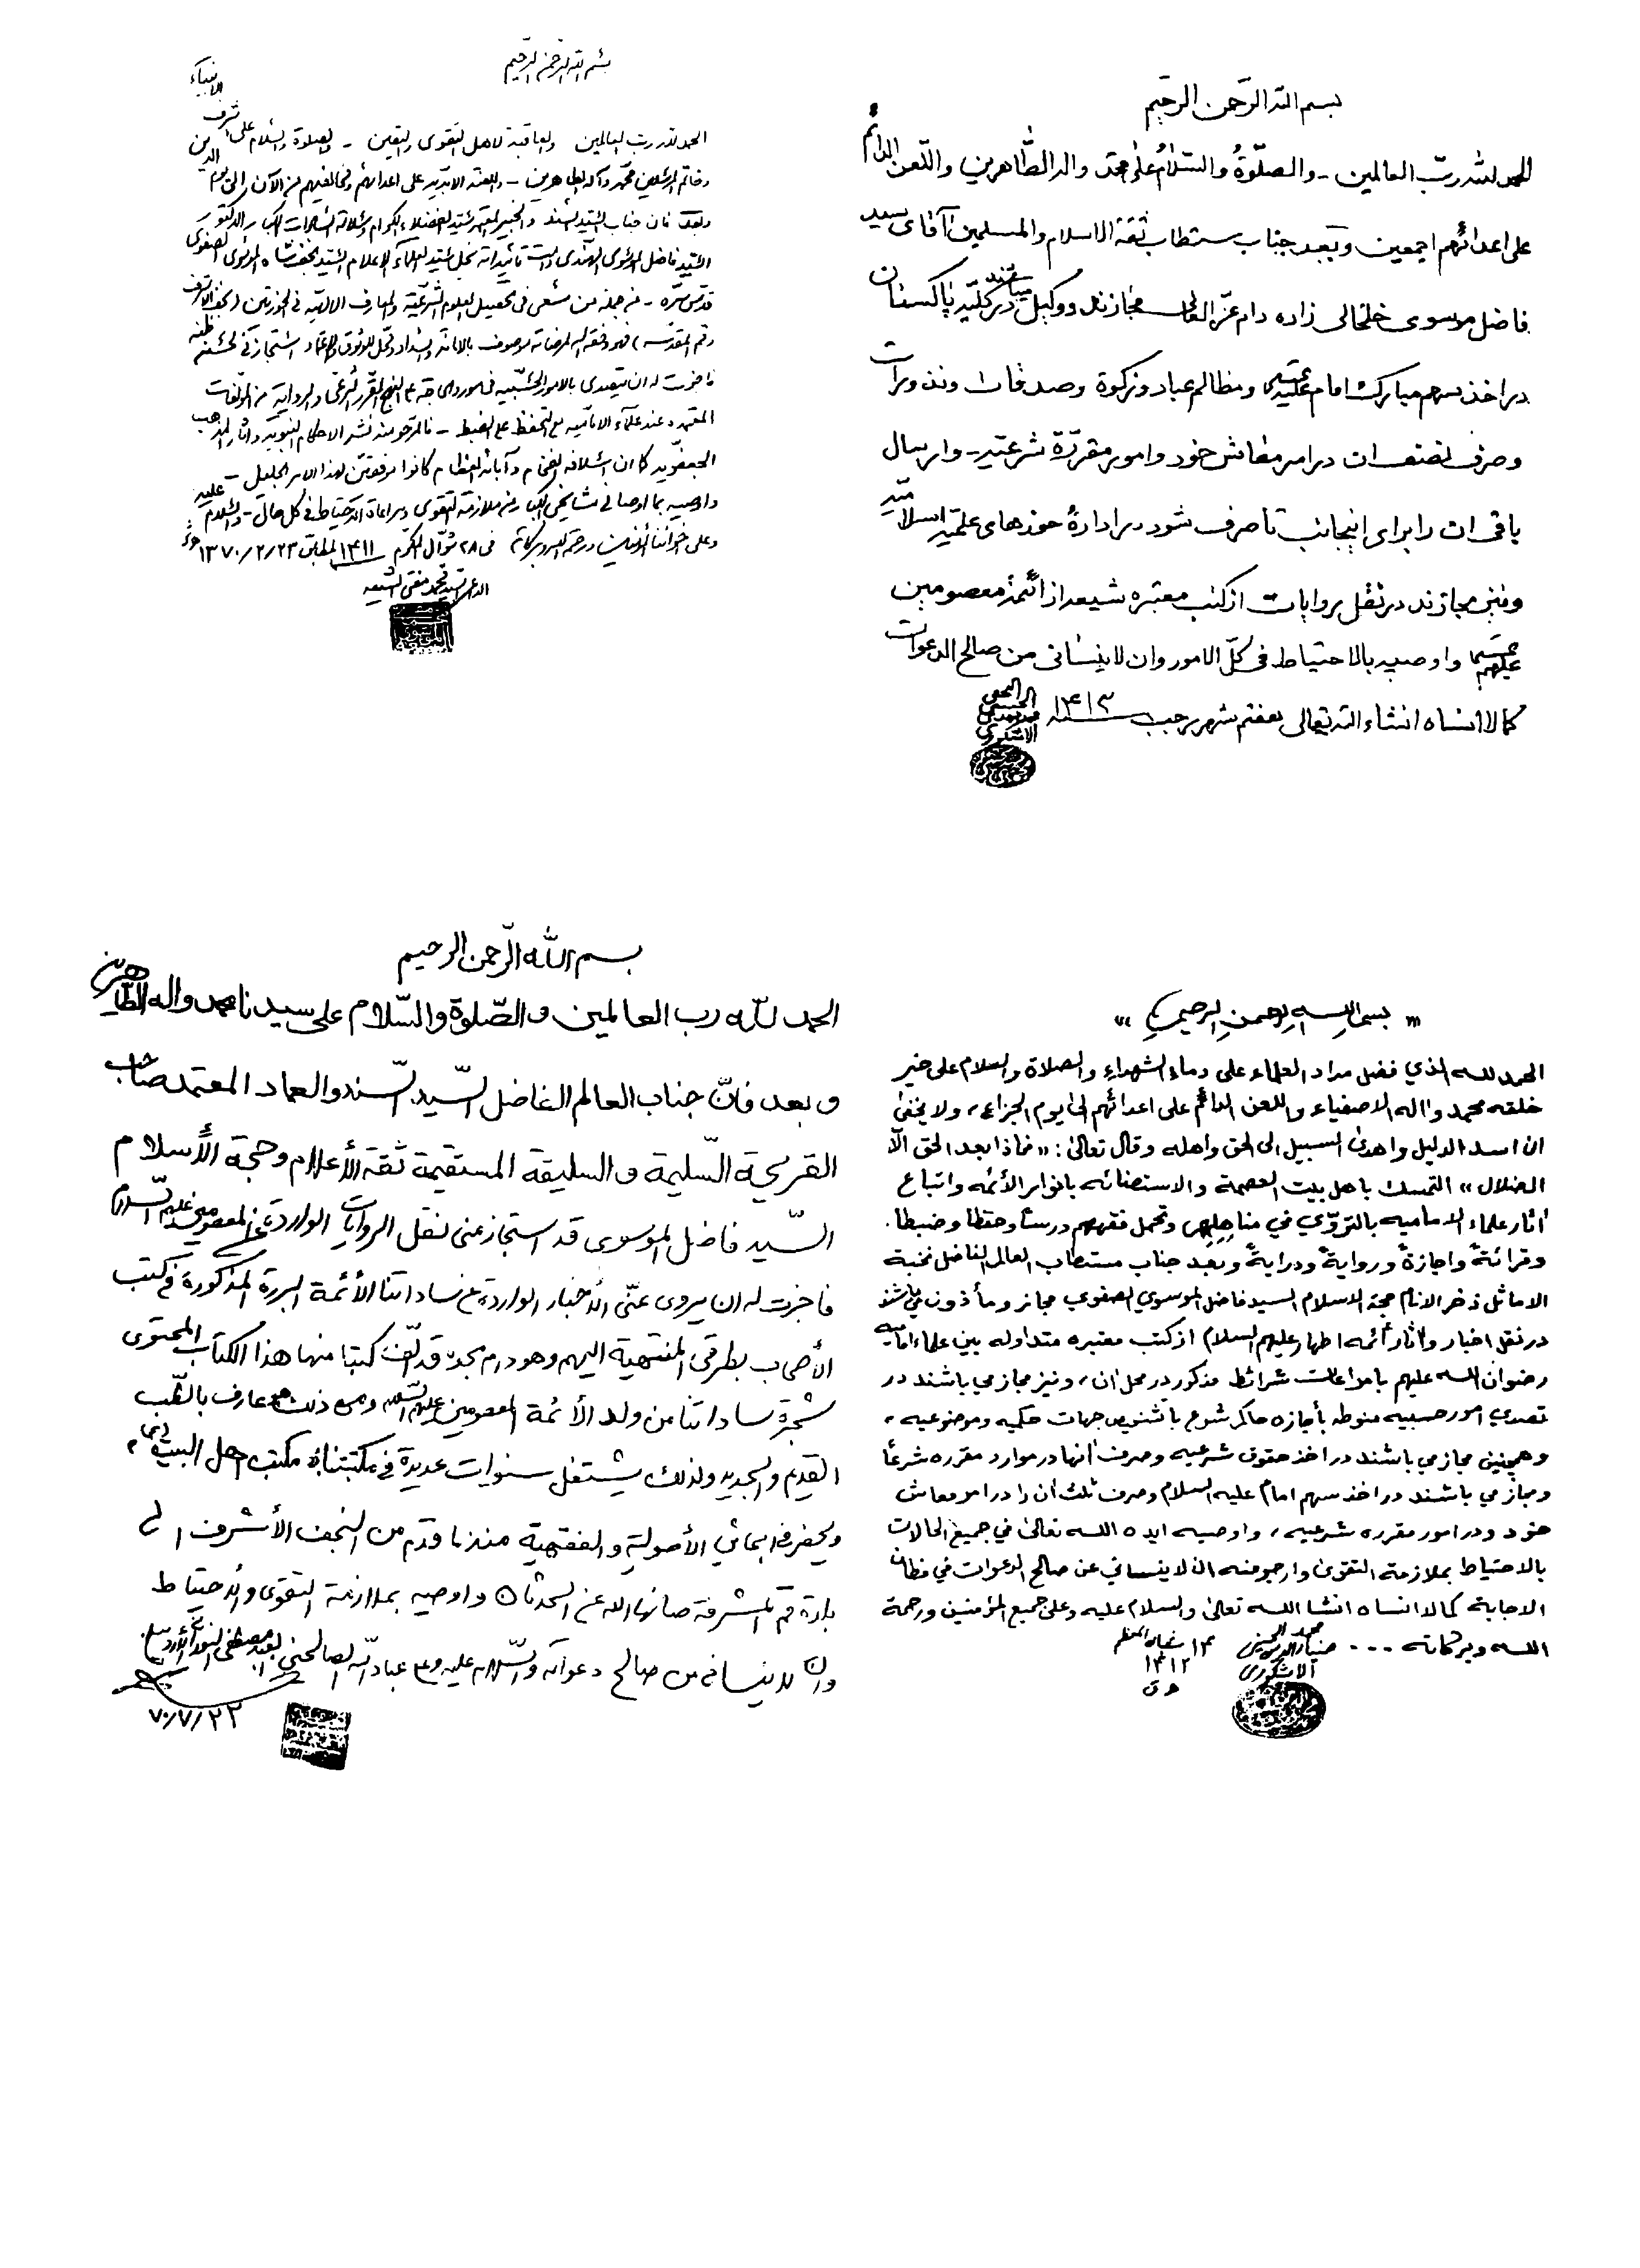 بسم الله الرّحمن الرحیم
الحمد لله ربّ العالمین - والصلّوةُ والسّلامُ علی محمّد واله الطّاهرین واللّعن الدائم
علی اعدائهم اجمعین وبعد جناب مستطاب ثقة الاسلام والمسلمین آقای سید
فاضل موسوی خلخالی زاده دام عزّه العالی مجازند ووکیل میباشند در کلیّه پاکستان
در اخذ سهم مبارک امام علیه السّلام ومظالم عباد وزکوة وصدقات ونذورات
وصرف نصف ان در امر معاش خود وامور مقرّرة شرعیّه - وارسال
باقی ان را برای اینجانب تا صرف شود در ادارهٔ حوزهای علمیّه اسلامیّه
ونیز مجازند در نقل روایات از کتب معتبره شیعه از ائمهٔ معصومین
علیهم السّلام واوصیه بالاحتیاط فی کلّ الامور وان لاینسانی من صالح الدعوات
کما لا انساه انشاء الله تعالی هفتم شهر رجب ۱۴۱۳
بسم الله الرّحمن الرّحیم
الحمد لله رب العالمین والعاقبة لاهل التقوی والیقین - والصلوة والسّلام علی اشرف الانبیاء
وخاتم المرسلین محمّد وآله الطاهرین - واللعنة الابدیه علی اعدائهم ومخالفیهم من الآن الی یوم الدین
وبعد فان جناب السیّد السند والخبیر المعتمد سیّد الفضلاء الکرام وسلالة السادات الکبار الدکتور
السیّد فاضل الموسوی الهندی دامت تأییداته نجل سیّد العلماء الاعلام السیّد نجف شاه الموسوی الصفوی
قدّس سرّه - من جملة من سعی فی تحصیل العلوم الشرعیّة والمعارف الالهیّه فی الحوزتین (نجف الاشرف
وقم المقدّسه) فهو وفقه الله لمرضاته موصوف بالامانة والسداد ومحلّ للوثوق والاعتماد استجازنی لحسن ظنّه
فاجزت له ان یتصدی بالامور الحسبیّه فی موارد الحاجة علی النهج المقرّر الشرعی والروایة من المؤلفات
المعتمده عند علماء الامامیه مع التحفظ علی الضبط - فالمرجو منه نشر الاحکام النبویّه وآثار المذهب
الجعفریّه کما ان اسلافه الفخام وآبائه العظام کانوا موفقین لهذا الامر الجلیل -
واوصیه بما اوصانی مشایخی الکبار من ملازمة التقوی ومراعاة الاحتیاط فی کل حال - والسّلام علیه
وعلی اخواننا المؤمنین ورحمة الله وبرکاته فی ۲۸ شوّال المکرّم ۱۴۱۱ المطابق ۱۳۷۰/۲/۲۳
السیّد محمّد مفتی الشیعه
بسم الله الرحمن الرحيم
الحمد لله الذي فضل مداد العلماء على دماء الشهداء والصلاة والسلام على خير
خلقه محمد وآله الاصفياء واللعن الدائم على اعدائهم الى يوم الجزاء، ولا يخفى
ان اسد الدليل واهدى السبيل الى الحق واهله وقال تعالى: «فماذا بعد الحق الّا
الضلال» التمسك باهل بيت العصمة والاستضائه بانوار الأئمه واتباع
آثار علماء الاماميه بالتروّي في مناهلهم وتحمل فقههم درسًا وحفظا وضبطا.
وقرائةً واجازةً وروايةً ودرايةً وبعد جناب مستطاب العالم الفاضل نخبة
الاماثل ذخر الانام حجة الاسلام السيد فاضل الموسوي الصفوي مجاز ومأذون مي باشند
در نقل اخبار وآثار أئمه اطهار عليهم السلام از كتب معتبره متداوله بين علماء اماميه
رضوان الله عليهم با مراعات شرائط مذكور در محل ان، ونيز مجاز مي باشند در
تصدي امور حسبيه منوطه بأجازه حاكم شرع با تشخيص جهات حكميه وموضوعيه،
وهمچنين مجاز مي باشند در اخذ حقوق شرعيه وصرف آنها در موارد مقرره شرعًا
ومجاز مي باشند در اخذ سهم امام عليه السلام وصرف ثلث آن را در امر معاش
خود ودر امور مقرره شرعيه، واوصيه ايده الله تعالى في جميع الحالات
بالاحتياط بملازمة التقوى وارجو منه ان لا ينساني عن صالح الدعوات في مظان
الاجابة كما لا انساه انشا الله تعالى والسلام عليه وعلى جميع المؤمنين ورحمة
الله وبركاته ... ضياء الدين الاشكوري ١٣ شعبان المعظم ١٤١٢ ه ق
بسم الله الرّحمن الرحيم
الحمد لله رب العالمين والصّلوة والسّلام على سيدنا محمد واله الطاهرين
وبعد فانّ جناب العالم الفاضل السّيد السّند والعماد المعتمد صاحب
القريحة السّليمة والسليقة المستقيمة ثقة الأعلام وحجة الأسلام
السّيد فاضل الموسوى قد استجاز عنى لنقل الروايات الواردة عن المعصومين عليهم السّلام
فاجزت له ان يروى عنّى الأخبار الواردة عن ساداتنا الأئمة البررة المذكورة في كتب
الأصحاب بطرقى المنتهية اليهم وهو دام مجده قد الّف كتبا منها هذا الكتاب المحتوى
شجرة ساداتنا من ولد الأئمة المعصومين عليهم السّلام ومع ذلك عارف بالطّب
القديم والجديد ولذلك يشتغل سنوات عديدة في مكتبتنا مكتب اهل البيت
ويحضر في ابحاثي الأصولية والفقهية منذ ما قدم من النجف الأشرف الى
بلدة قم المشرفة صانها الله عن الحدثان واوصيه بملازمة التقوى والأحتياط
وان لا ينساني من صالح دعواته والسّلام عليه وعلى عباد الله الصالحين العبد مصطفى النورانى الأردبيلى
۷۰/۷/۲۳